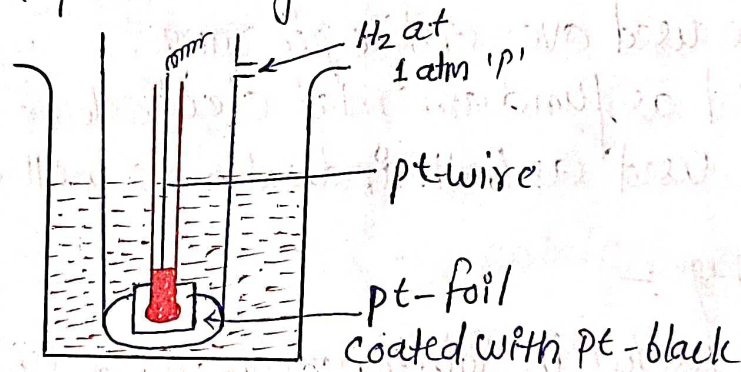 H2 at
1 atm 'P'
pt-wire
pt-foil
coated with pt-black